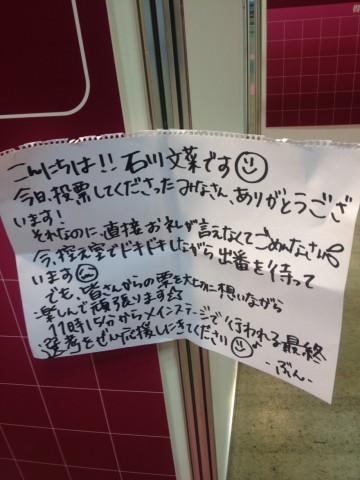 こんにちは!! 石川文菜です☺
今日、投票してくださったみなさん、ありがとうござ
います!
それなのに、直接お礼が言えなくてごめんなさい
今、控え室でドキドキしながら出番を待って
います
でも、皆さんからの票を大切に想いながら
楽しんで頑張ります☆
11時15分からメインステージで行われる最終
選考をぜひ応援しにきてください☺
-ぶん-